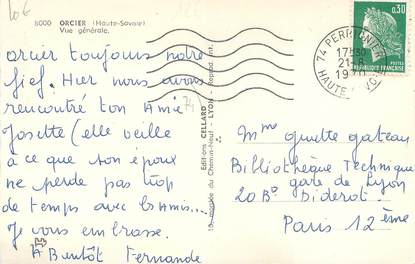 10€
8000 ORCIER (Haute-Savoie)
Vue générale.
orcier toujours notre
fief. Hier nous avons
rencontré ton Amie
Josette (elle veille
à ce que son époux
ne perde pas trop
de temps avec les Amis...
Je vous embrasse.
A Bentôt Fernande
74
Editions CELLARD
LYON - Reprod. Int.
74 PERRIGNIER
17H30
21-8
HAUTE-SAVOIE
0,30
REPUBLIQUE FRANÇAISE
Mme gateau
Bibliothèque Technique
gare de Lyon
20 Bd Diderot.
Paris 12ème